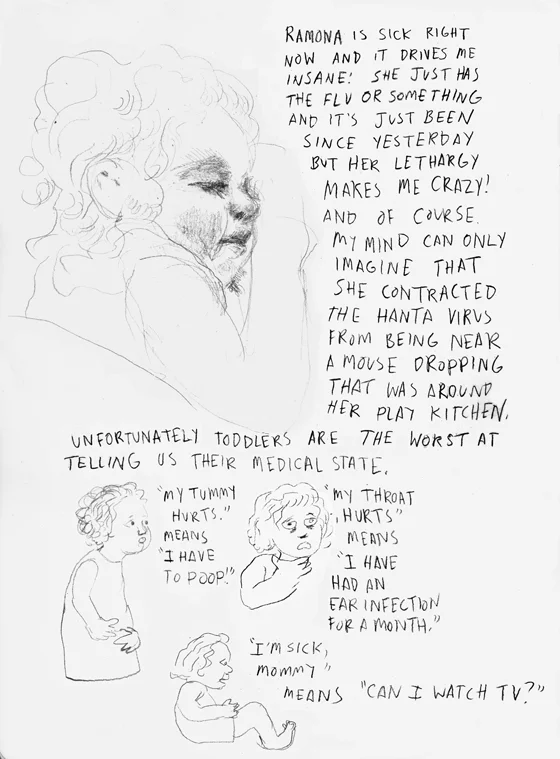 RAMONA IS SICK RIGHT
NOW AND IT DRIVES ME
INSANE! SHE JUST HAS
THE FLU OR SOMETHING
AND IT'S JUST BEEN
SINCE YESTERDAY
BUT HER LETHARGY
MAKES ME CRAZY!
AND OF COURSE.
MY MIND CAN ONLY
IMAGINE THAT
SHE CONTRACTED
THE HANTA VIRUS
FROM BEING NEAR
A MOUSE DROPPING
THAT WAS AROUND
HER PLAY KITCHEN.
UNFORTUNATELY TODDLERS ARE THE WORST AT
TELLING US THEIR MEDICAL STATE.
"MY TUMMY
HURTS."
MEANS
"I HAVE
TO POOP!"
"MY THROAT
HURTS"
MEANS
"I HAVE
HAD AN
EAR INFECTION
FOR A MONTH."
"I'M SICK,
MOMMY"
MEANS "CAN I WATCH TV?"